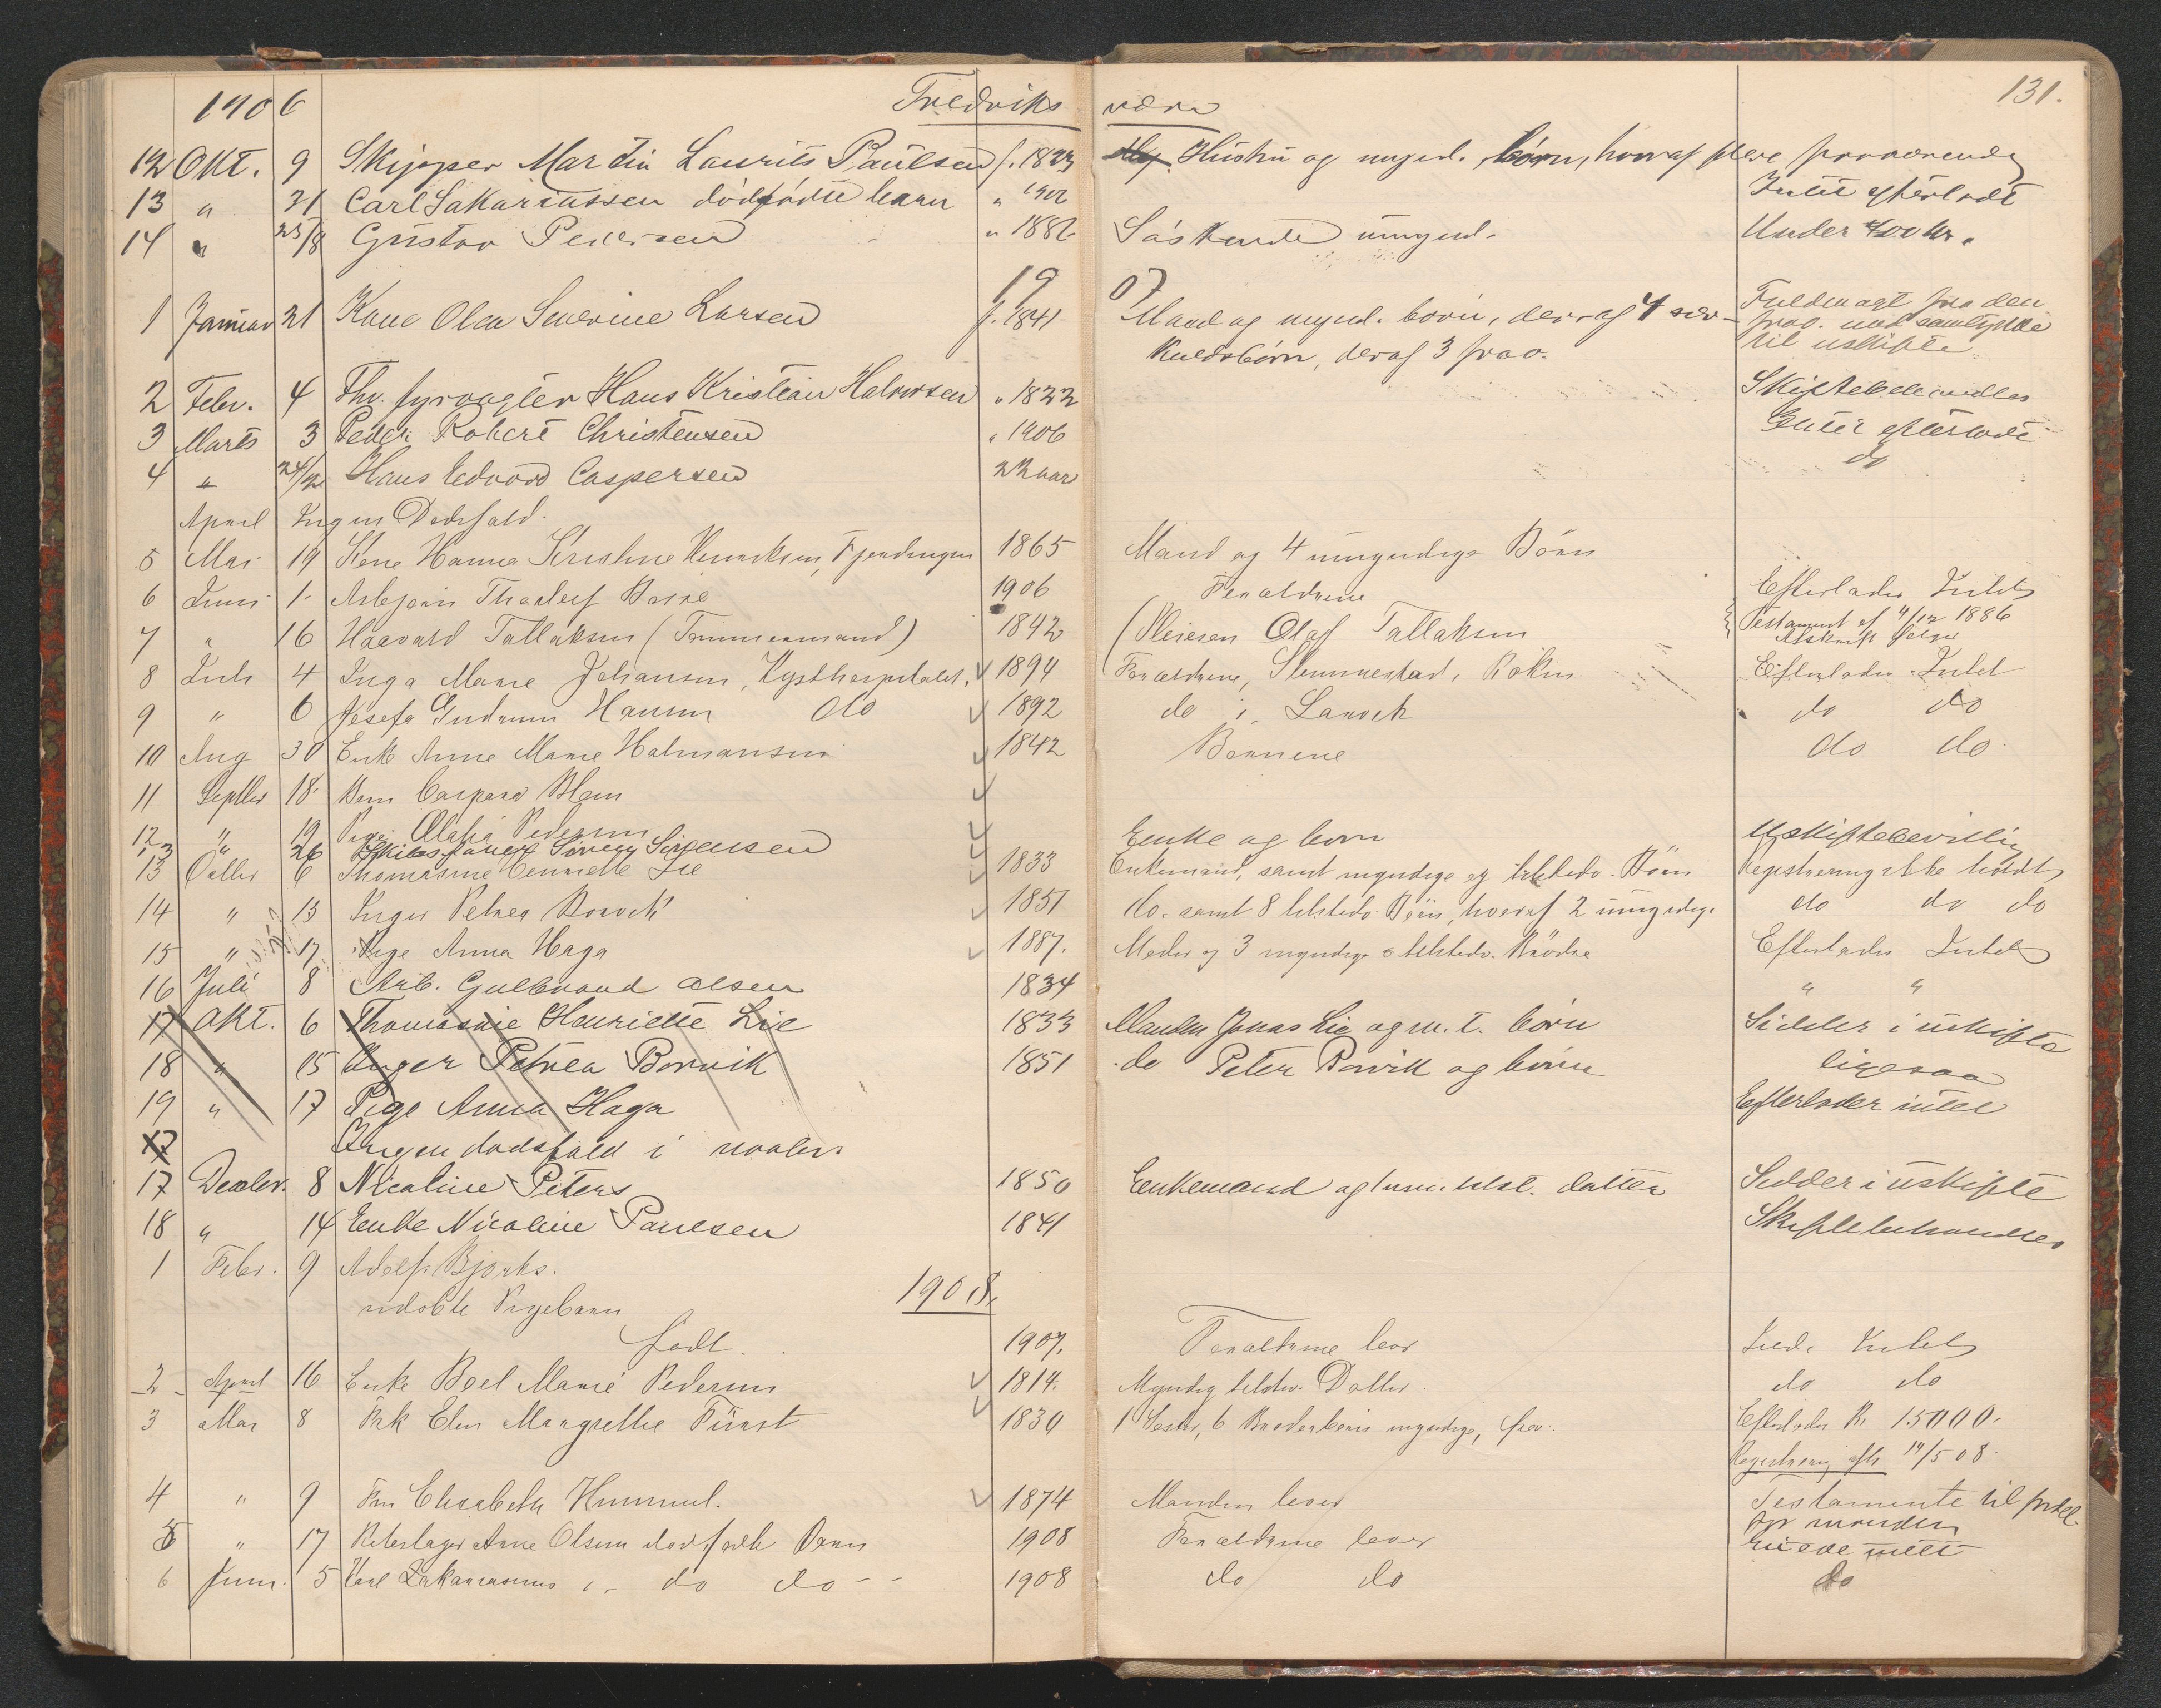 131.
1906 Fredriks værn
12 Okt. 9 Skipper Martin Laurits Paulsen f. 1823 Hustru og mynd. børn, hvoraf flere fraværende
13 " 21 Carl Sakariassen dødfødte barn " 1906 Intet efterladt
14 " 23/8 Gustav Pedersen " 1882 Søskende umynd. Under 400 kr.
1907
1 Januar 21 Kone Olea Severine Larsen f. 1841 Mand og mynd. børn, deraf 4 sær- Fuldmagt fra den
kuldsbørn, deraf 3 frav. frav. med samtykke
til uskifte
2 Febr. 4 Fhv. fyrvogter Hans Kristian Halvorsen " 1822 Skiftebehandles
3 Marts 3 Peder Robert Christensen " 1906 Intet efterladt
4 " 24/2 Hans Edvard Caspersen 22 aar do
April Ingen Dødsfald.
5 Mai 19 Kone Hanna Kristine Henriksen, Fjendingen 1865 Mand og 4 umyndige Børn
6 Juni 1. Asbjørn Thorleif Borre 1906 Forældrene Efterlader Intet
7 " 16 Haavald Tallaksen (Tømmermand) 1842 Olaf Tallaksen Testament af 4/12 1886
Afskrift følger
8 Juli 4 Inga Marie Johansen, Kysthospitalet. 1894 Forældrene, Slemmestad, Røken Efterlader Intet
9 " 6 Josefa Gudrun Hansen do 1892 do i Larvik do do
10 Aug 30 Enke Anne Marie Halmansen 1842 Børnene do do
11 Septbr 18. Barn Caspara Blom
12 " 19 Pige Olafia Pedersen
13 " 26 Søren Sørensen Enke og børn Uskiftebevilling
13 Octbr 6 Thomasine Henriette Lie 1833 Enkemand, samt myndige og tilstedv. Børn Registrering ikke holdt
14 " 15 Inger Petrea Borvik 1851 do. samt 8 tilstedv. Børn, hvoraf 2 umyndige do do do
15 " 17 Pige Anna Haga 1887. Moder og 3 myndige tilstedv. Brødre Efterlader Intet
16 Juli 8 Arb. Gulbrand Olsen 1834 " "
17 Okt. 6 Thomasine Henriette Lie 1833 Manden Jonas Lie og m. t. børn Sidder i uskifte
18 " 15 Inger Petrea Borvik 1851 do Peter Borvik og børn ligesaa
19 " 17 Pige Anna Haga Efterlader intet
17 Ingen dødsfald i novbr.
17 Decbr. 8 Nicoline Peters 1850 Enkemand og tilst. datter Sidder i uskifte
18 " 14 Enke Nicoline Paulsen 1841 Skiftebehandles
1 Febr. 9 Adolf Bjørks.
udøbte Pigebarn 1908.
født 1907. Forældrene lever Intet
2 April 16 Enke Boel Marie Pedersen 1814. Myndig tilstedv. Datter do do
3 Mai 8 Frk Elen Margrethe Fürst 1830 1 Søster, 6 Broderbørn myndige, frav. Efterlader Kr 15000.
Registrering afh. 19/5 08.
4 " 9 Fru Elisabeth Hummel. 1874 Manden lever Testamente til fordel
for manden
5 " 17 Anne Olsen dødfødte Barn 1908 Forældrene lever eiede intet
6 Juni. 5 Karl Zakariassens do do 1908 do do do